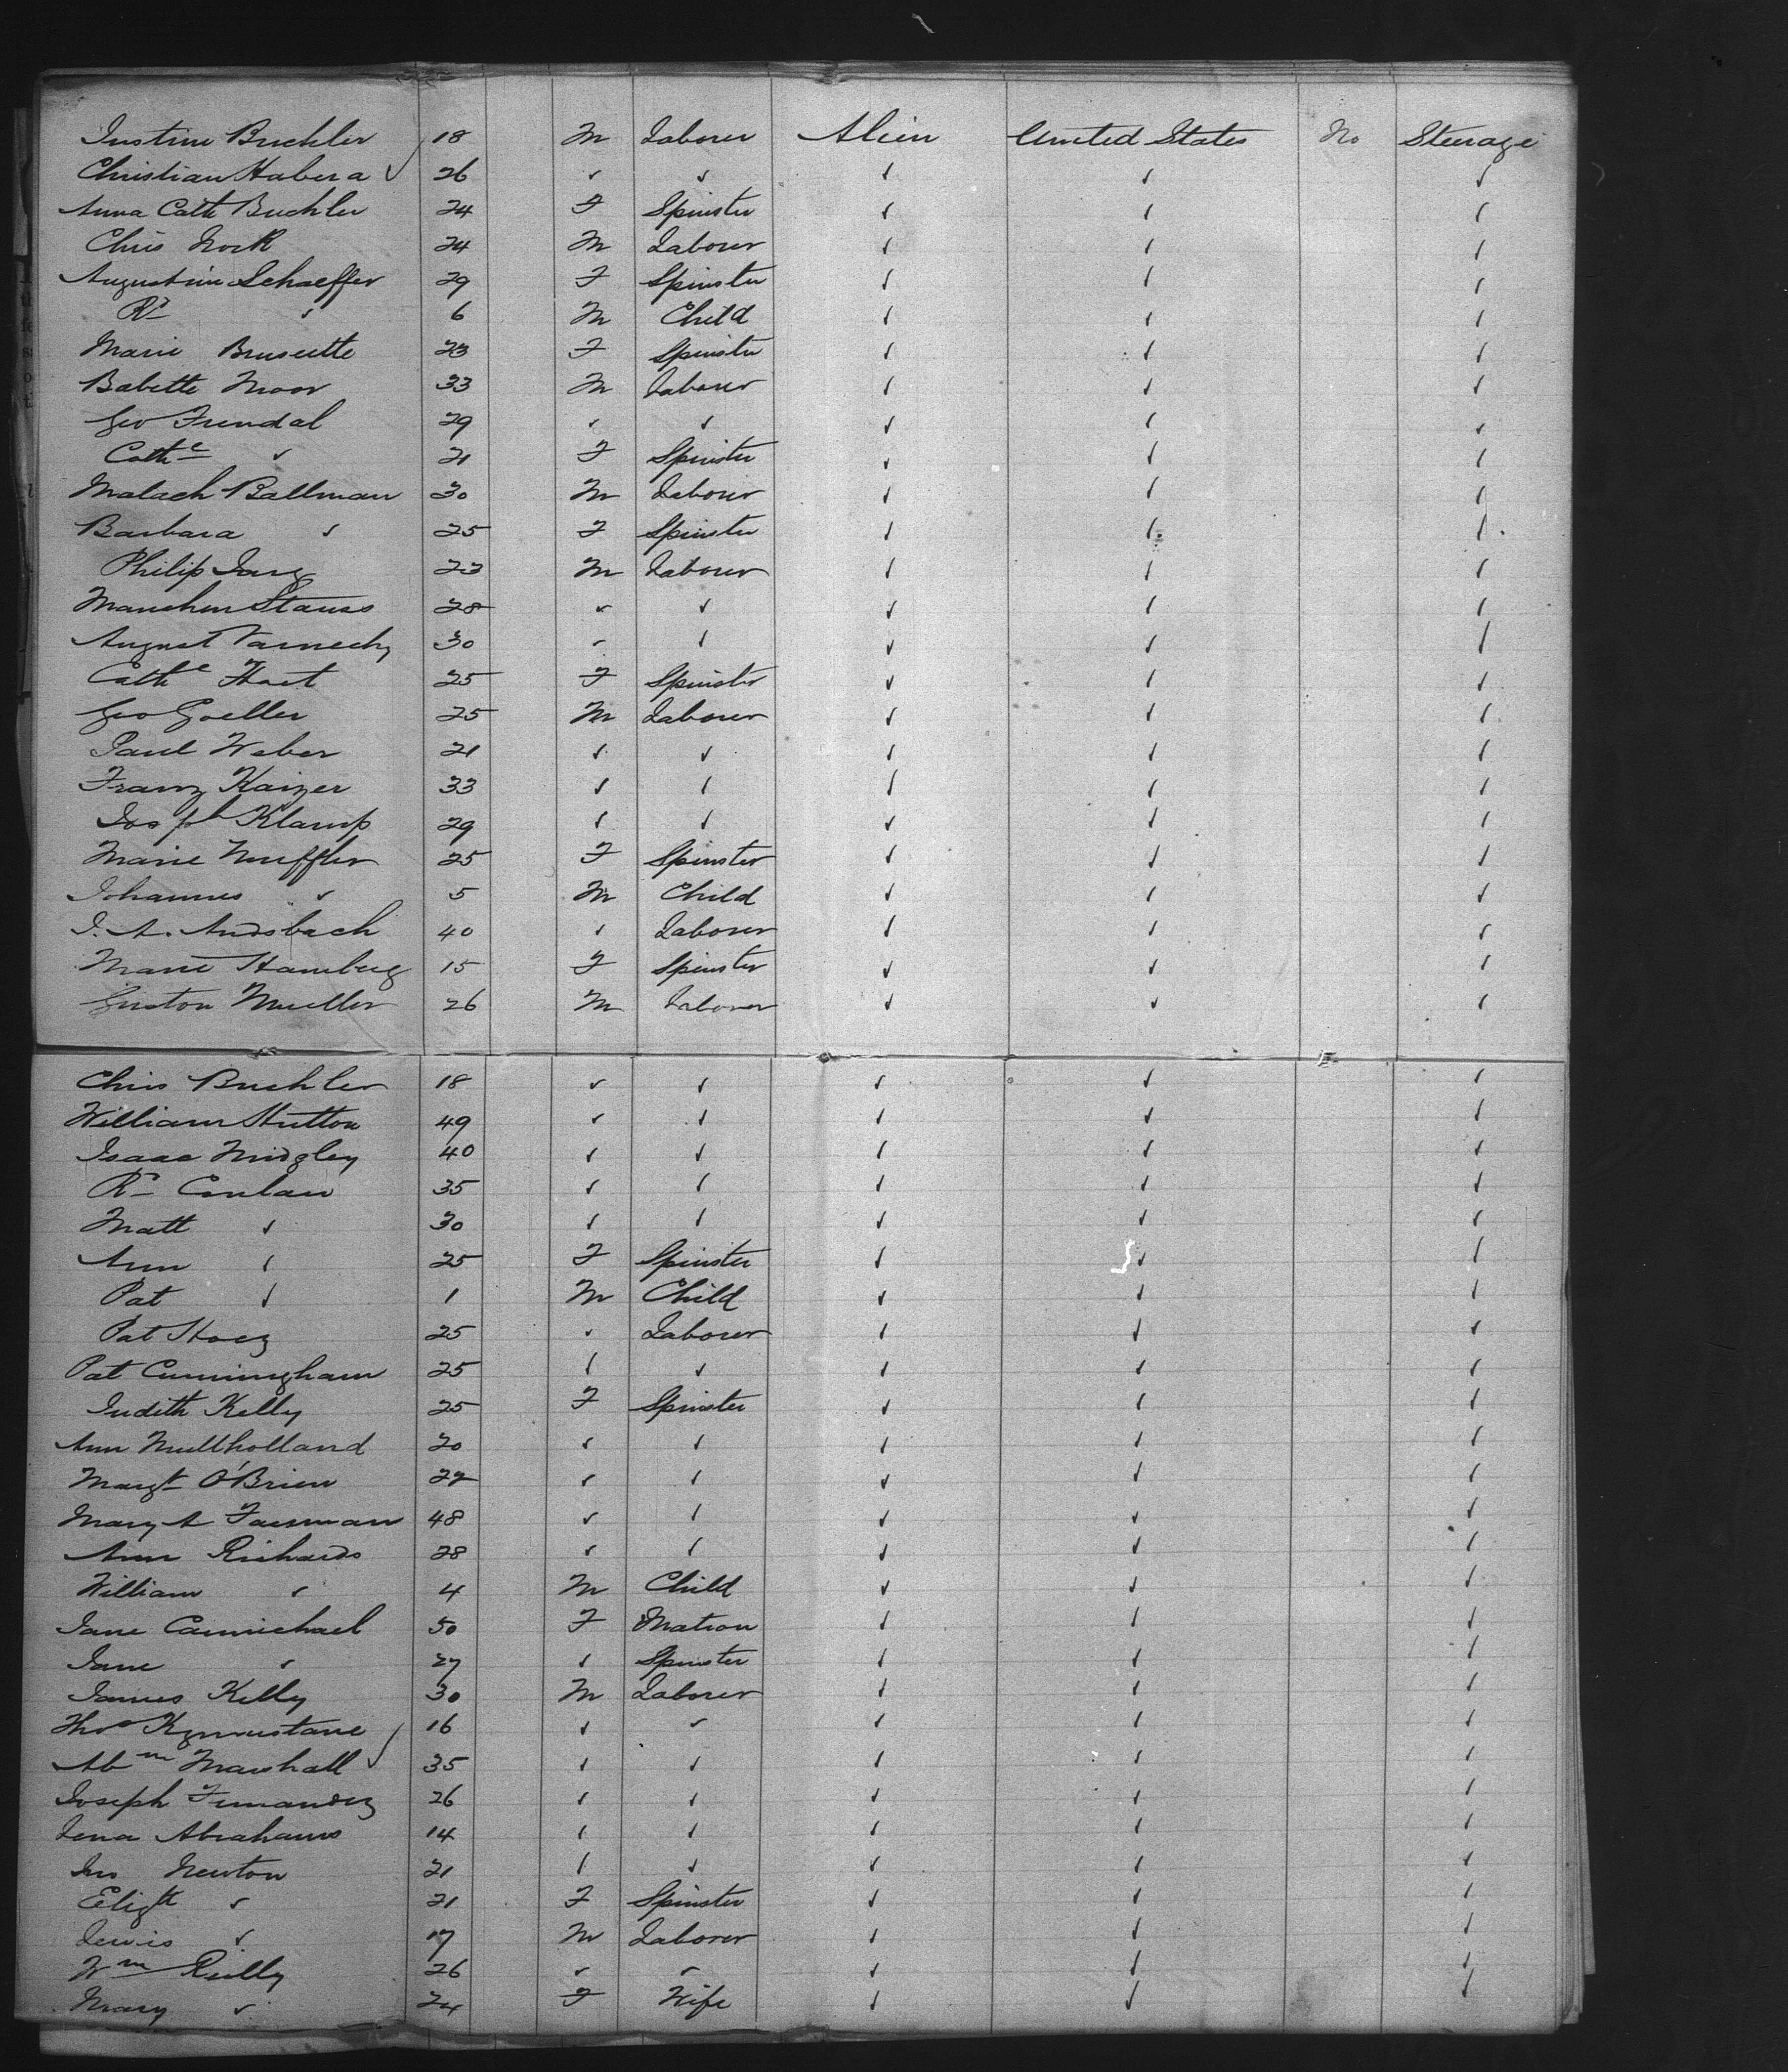 Justine Buehler 18 M Laborer Alien United States No Steerage
Christian Habera ✓ 26 ✓ ✓ ✓ ✓ ✓
Anna Cath Buehler 24 F Spinster ✓ ✓ ✓
Chris Nock 24 M Laborer ✓ ✓ ✓
Augustine Schaeffer 29 F Spinster ✓ ✓ ✓
Rd ✓ 6 M Child ✓ ✓ ✓
Marie 23 F Spinster ✓ ✓ ✓
Babette Moor 33 M Laborer ✓ ✓ ✓
Geo Frendal 29 ✓ ✓ ✓ ✓ ✓
Cathe ✓ 21 F Spinster ✓ ✓ ✓
Malach Ballman 30 M Laborer ✓ ✓ ✓
Barbara ✓ 25 F Spinster ✓ ✓ ✓
Philip 23 M Laborer ✓ ✓ ✓
Manchen Stauss 28 ✓ ✓ ✓ ✓ ✓
August 30 ✓ ✓ ✓ ✓ ✓
Cathe Hart 25 F Spinster ✓ ✓ ✓
Geo Goeller 25 M Laborer ✓ ✓ ✓
Paul Weber 21 ✓ ✓ ✓ ✓ ✓
Franz Kaizer 33 ✓ ✓ ✓ ✓ ✓
Joseph Klamp 29 ✓ ✓ ✓ ✓ ✓
Marie Muffler 25 F Spinster ✓ ✓ ✓
Johannes ✓ 5 M Child ✓ ✓ ✓
J. A. Andsbach 40 ✓ Laborer ✓ ✓ ✓
Marie Hamberg 15 F Spinster ✓ ✓ ✓
Guston Mueller 26 M Laborer ✓ ✓ ✓
Chris Buehler 18 ✓ ✓ ✓ ✓ ✓
William Hutton 49 ✓ ✓ ✓ ✓ ✓
Isaac Midgley 40 ✓ ✓ ✓ ✓ ✓
Rd Conlan 35 ✓ ✓ ✓ ✓ ✓
Matt ✓ 30 ✓ ✓ ✓ ✓ ✓
Ann ✓ 25 F Spinster ✓ ✓ ✓
Pat ✓ 1 M Child ✓ ✓ ✓
Pat Hoey 25 ✓ Laborer ✓ ✓ ✓
Pat Cunningham 25 ✓ ✓ ✓ ✓ ✓
Judith Kelly 25 F Spinster ✓ ✓ ✓
Ann Mullholland 20 ✓ ✓ ✓ ✓ ✓
Margt O'Brien 22 ✓ ✓ ✓ ✓ ✓
Mary A 48 ✓ ✓ ✓ ✓ ✓
Ann Richards 28 ✓ ✓ ✓ ✓ ✓
William ✓ 4 M Child ✓ ✓ ✓
Jane Carmichael 50 F Matron ✓ ✓ ✓
Jane ✓ 27 ✓ Spinster ✓ ✓ ✓
James Kelly 30 M Laborer ✓ ✓ ✓
Thos 16 ✓ ✓ ✓ ✓ ✓
Abm Marshall ✓ 35 ✓ ✓ ✓ ✓ ✓
Joseph Fernandez 26 ✓ ✓ ✓ ✓ ✓
Lena Abrahams 14 ✓ ✓ ✓ ✓ ✓
Jno Newton 21 ✓ ✓ ✓ ✓ ✓
Elizth ✓ 21 F Spinster ✓ ✓ ✓
Lewis ✓ 17 M Laborer ✓ ✓ ✓
Wm Reilly 26 ✓ ✓ ✓ ✓ ✓
Mary ✓ 24 F Wife ✓ ✓ ✓